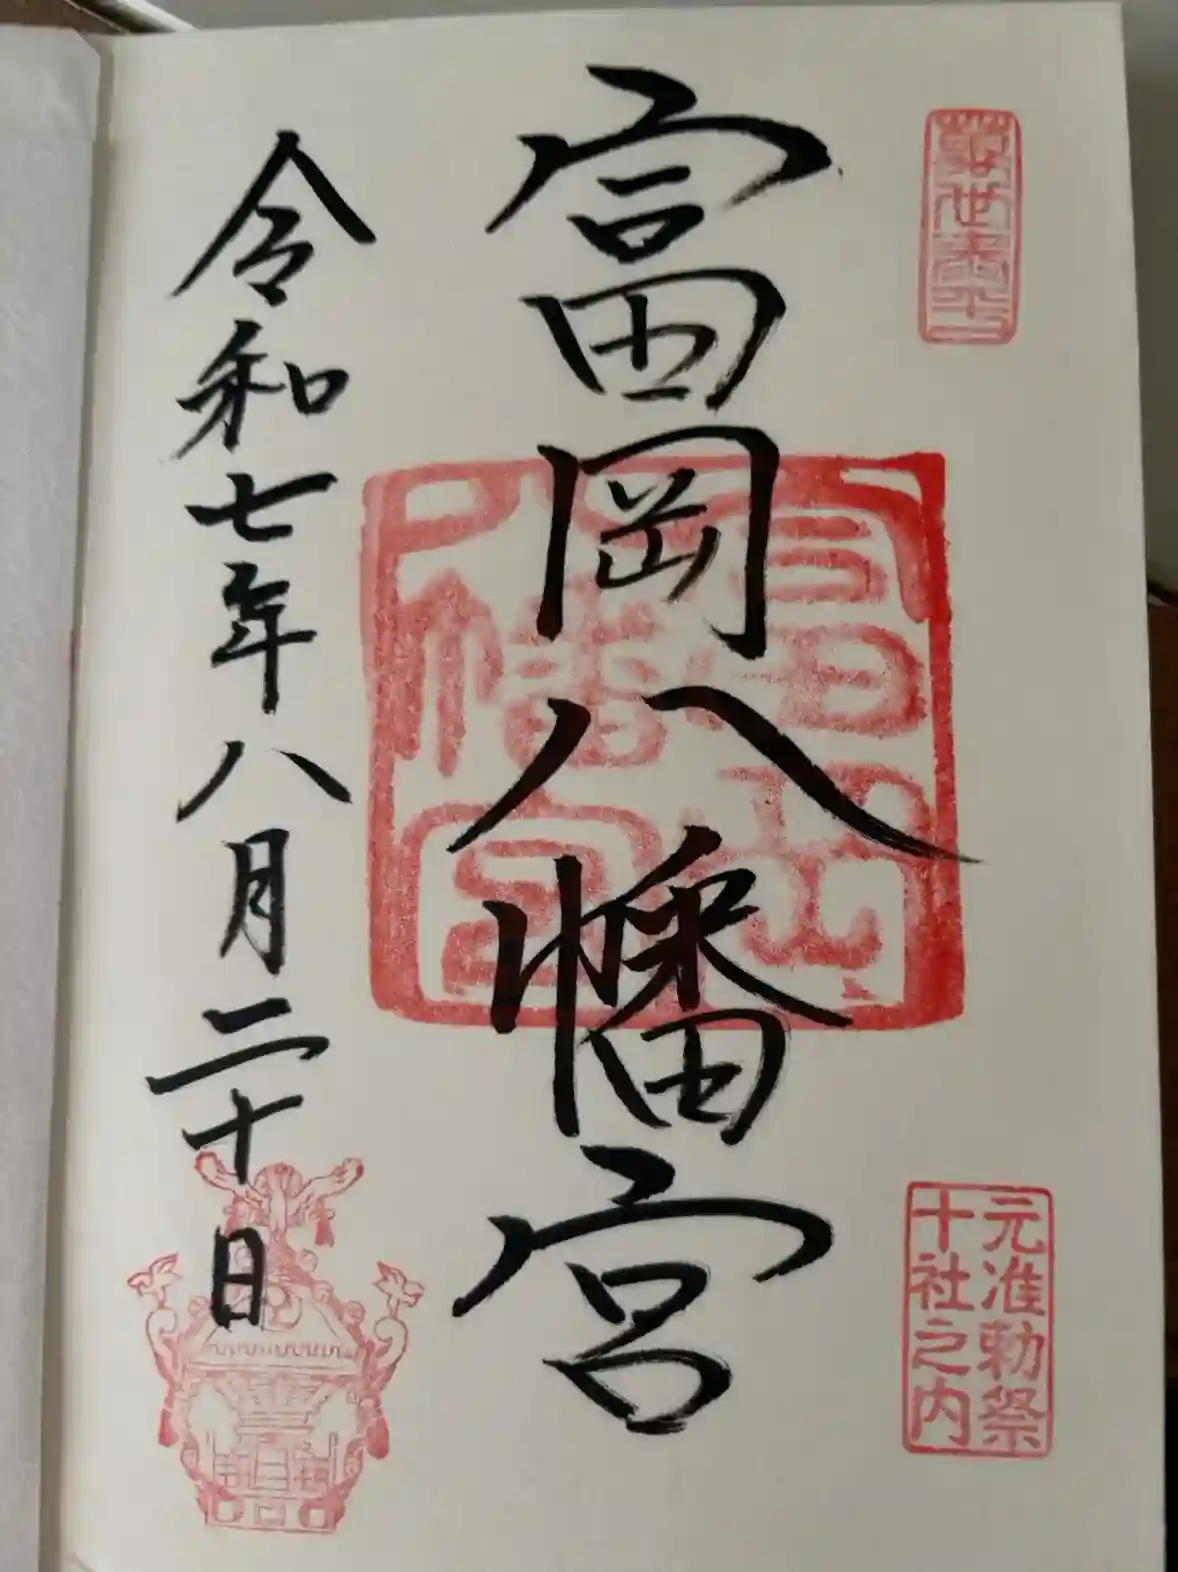 元准勅祭
十社之内
富岡八幡宮
富岡
八幡宮
令和七年八月二十日